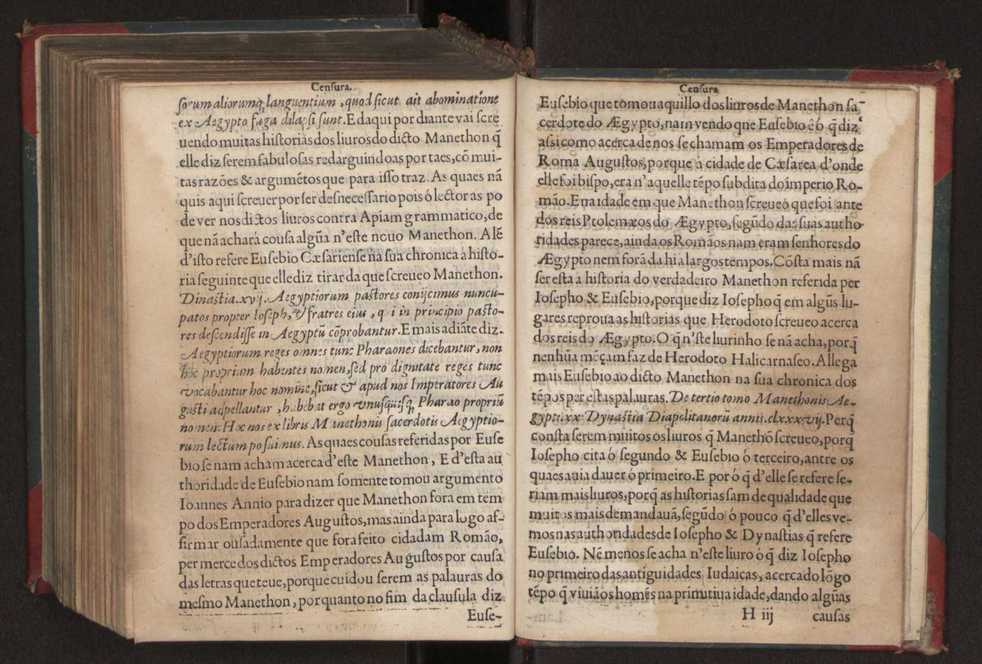 Censura.
sorum aliorumq̃ languentium, quod sicut ait abominatione
ex Aegypto fuga dilapsi sunt. E daqui por diante vai scre
uendo muitas historias dos liuros do dicto Manethon q̃
elle diz serem fabulosas redarguindoas por taes, cõ mui-
tas razões & argumẽtos que para isso traz. As quaes nã
quis aqui screuer por ser desnecessario pois ó lector as po
de ver nos dictos liuros contra Apiam grammatico, de
que nã achará cousa algũa n'este nouo Manethon. Alẽ
d'isto refere Eusebio Cæsariense na sua chronica à histo-
ria seguinte que elle diz tirar da que screueo Manethon.
Dinastia.xvij. Aegyptiorum pastores conijcimus nuncu-
patos propter Ioseph, & fratres eius, qui in principio pasto-
res descendisse in Aegyptũ cõprobantur. E mais adiãte diz.
Aegyptiorum reges omnes tunc Pharaones dicebantur, non
hoc proprium habentes nomen, sed pro dignitate reges tunc
vocabantur hoc nomine, sicut & apud nos Imperatores Au
gusti appellantur, habebat ergo vnusquisq, Pharao propriũ
nomen. Hæc nos ex libris Manethonis sacerdotis Aegyptio-
rum lectum posuimus. As quaes cousas referidas por Euse
bio se nam acham acerca d'este Manethon, E d'esta au
thoridade de Eusebio nam somente tomou argumento
Ioannes Annio para dizer que Manethon fora em tem
po dos Emperadores Augustos, mas ainda para logo af-
firmar ousadamente que fora feito cidadam Romão,
per merce dos dictos Emperadores Augustos por causa
das letras que teue, porque cuidou serem as palauras do
mesmo Manethon, por quanto no fim da clausula diz
Euse-
Censura
Eusebio que tomou aquillo dos liuros de Manethon sa-
cerdote do Ægypto, nam vendo que Eusebio é ó q̃ diz
assi como acerca de nos se chamam os Emperadores de
Roma Augustos, porque à cidade de Cæsarea d'onde
elle foi bispo, era n'aquelle tẽpo subdita do imperio Ro-
mão. E na idade em que Manethon screueó que foi ante
dos reis Ptolemæos do Ægypto, segũdo das suas autho
ridades parece, ainda os Romãos nam eram senhores do
Ægypto nem forã da hi a largos tempos. Cõsta mais nã
ser esta à historia do verdadeiro Manethon referida per
Iosepho & Eusebio, porque diz Iosepho q̃ em algũs lu-
gares reproua as historias que Herodoto screueo acerca
dos reis do Ægypto. O q̃ n'este liurinho se nã acha, porq̃
nenhũa mẽçam faz de Herodoto Halicarnaseo. Allega
mais Eusebio ao dicto Manethon na sua chronica dos
tẽpos per estas palauras. De tertio tomo Manethonis Ae-
gypti.xx Dynastia Diapolitanorũ annis.clxxxvij. Perq̃
consta serem muitos os liuros q̃ Manethõ screueo, porq̃
Iosepho cita ó segundo & Eusebio ó terceiro, antre os
quaes auia dauer ó primeiro. E por ó q̃ d'elle se refere se-
riam mais liuros, porq̃ as historias sam de qualidade que
muitos mais demandauã, segũdo ó pouco q̃ d'elles ve-
mos nas authoridades de Iosepho & Dynastias q̃ refere
Eusebio. Nẽ menos se acha n'este liuro ó q̃ diz Iosepho
no primeiro das antiguidades Iudaicas, acerca do lõgo
tẽpo q̃ viuiã os homẽs na primitiua idade, dando algũas
H iij causas